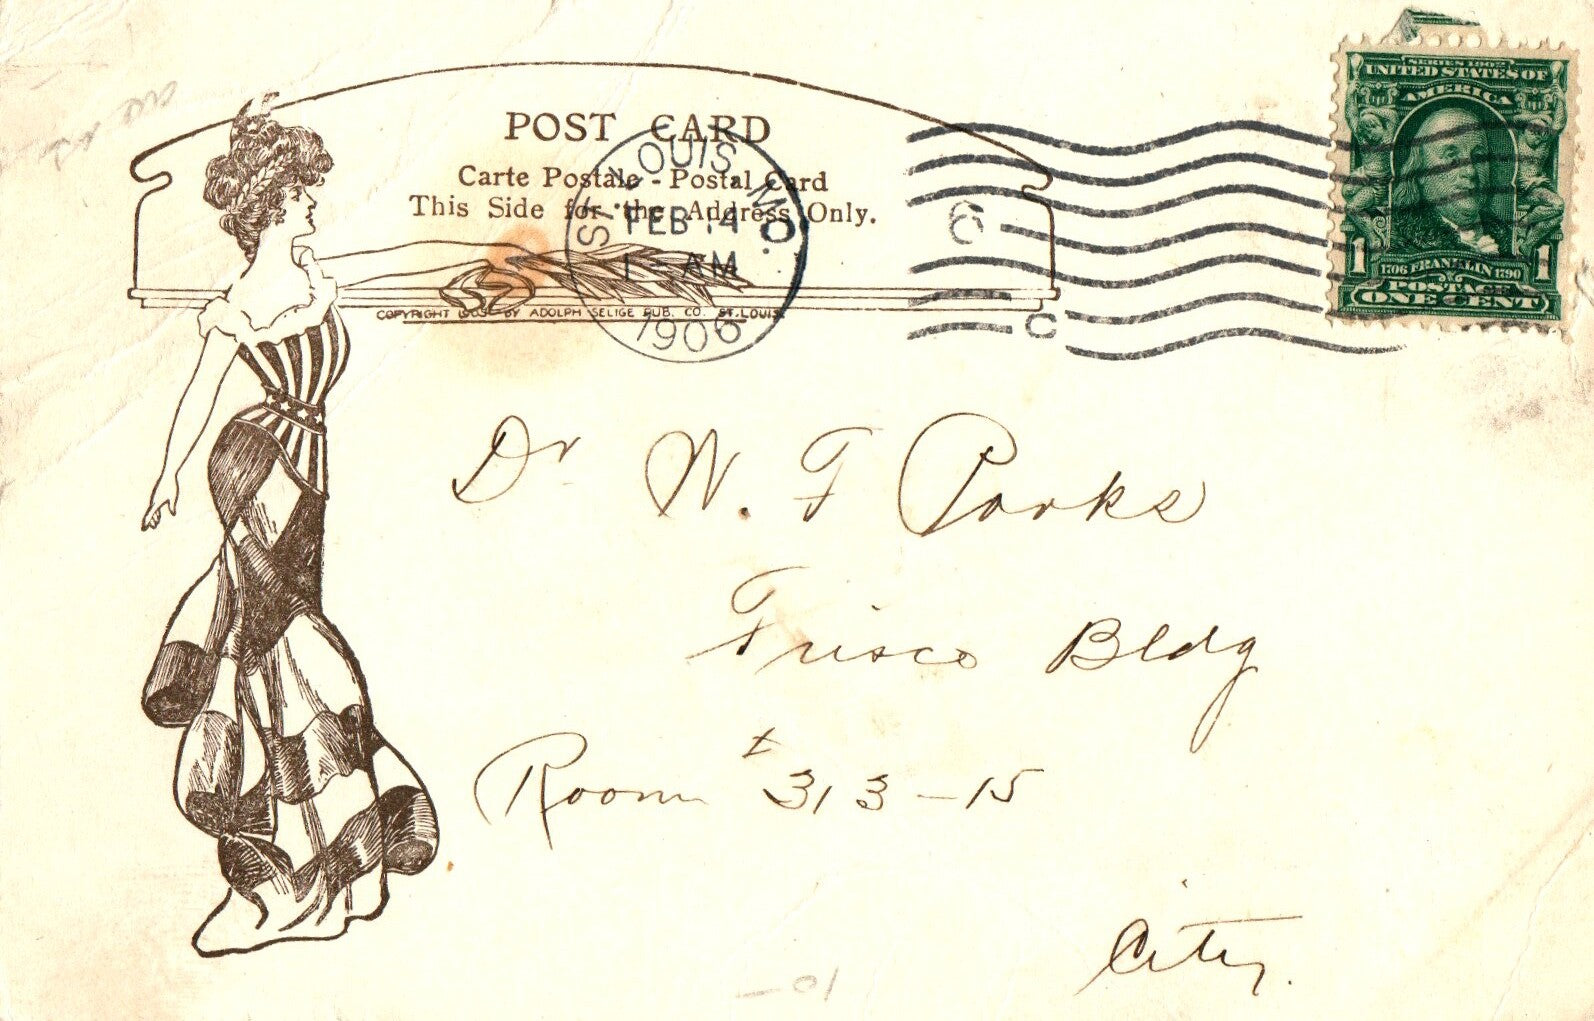 POST CARD
Carte Postale - Postal Card
This Side for the Address Only.
COPYRIGHT 1905 BY ADOLPH SELIGE PUB. CO. ST. LOUIS
ST. LOUIS MO.
FEB 14
1 - AM
1906
6
C
SERIES 1902
UNITED STATES OF
AMERICA
1706 FRANKLIN 1790
1 1
POSTAGE
ONE CENT
Dr W. F Parks
Frisco Bldg
Room # 313-15
City.